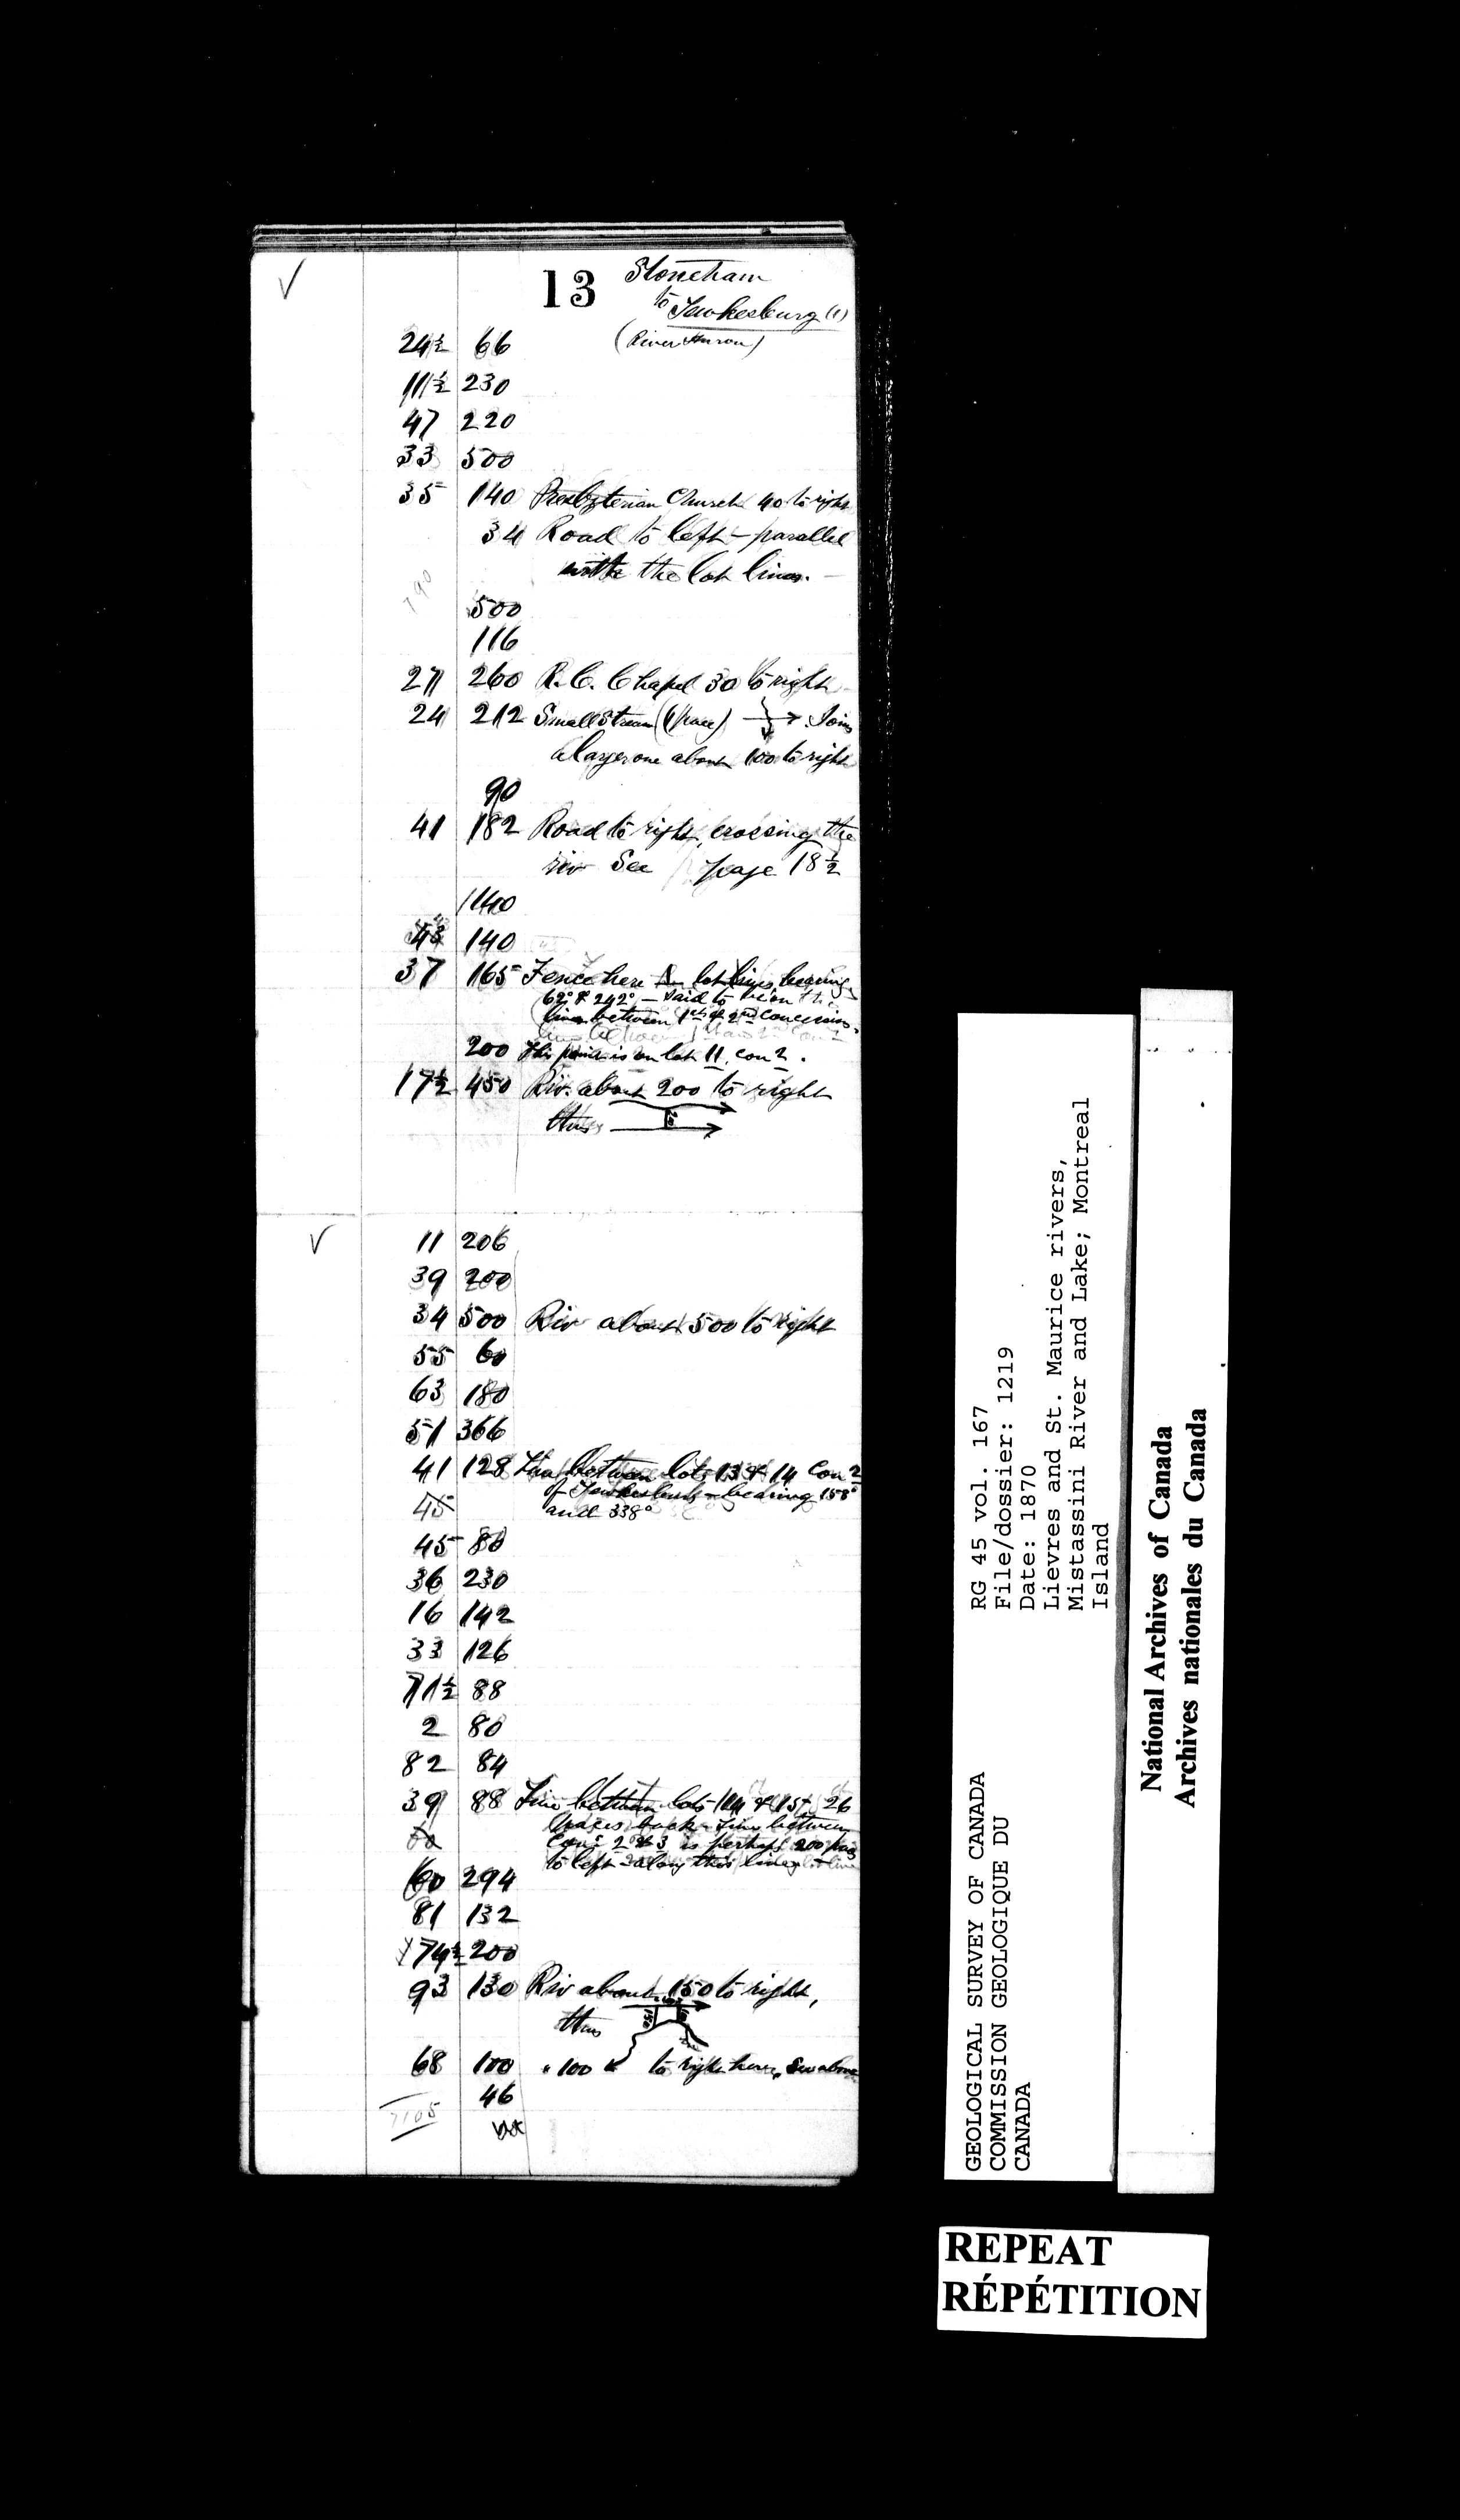 13 Stoneham
to Tewkesburg (1)
(River Huron)
24½ 66
11½ 230
47 220
33 500
35 140 Presbyterian Church 40 to right
34 Road to left - parallel
with the lot lines.
790
500
116
27 260 R.C. Chapel 30 to right
24 212 Small Stream (1 pace) Joins
a larger one about 100 to right
90
41 182 Road to right, crossing the
riv See page 18½
140
43 140
37 165 Fence here lot lines, bearing
62° & 242° - said to be on the
line between 1st & 2nd concession.
200 This point is on lot 11, con 2.
17½ 450 Riv. about 200 to right
thus
11 206
39 200
34 500 Riv about 500 to right
55 60
63 180
51 366
41 128 Line between lots 13 & 14 Con 2
of Tewkesbury - bearing 158°
45
and 338°
45 80
36 230
16 142
33 126
71½ 88
2 80
82 84
39 88 Line between lots 14 & 15, 26
paces back. Line between
60
Con: 2 & 3 is perhaps 200 paces
to left - along this line
60 294
81 132
174½ 200
93 130 Riv about 150 to right,
thus
150
68 100 " 100 to right here, See above
46
7105
RG 45 vol. 167
File/dossier: 1219
Date: 1870
Lievres and St. Maurice rivers,
Mistassini River and Lake; Montreal
Island
GEOLOGICAL SURVEY OF CANADA
COMMISSION GEOLOGIQUE DU
CANADA
National Archives of Canada
Archives nationales du Canada
REPEAT
RÉPÉTITION